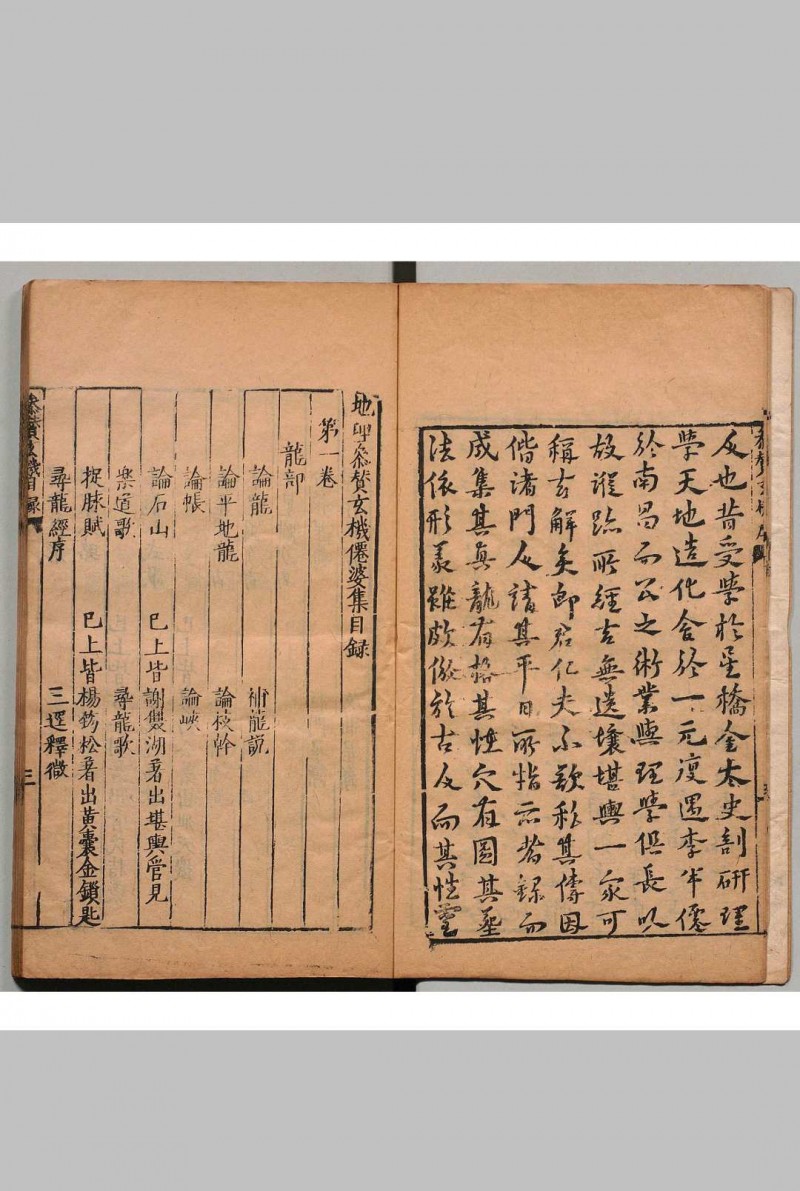 友也昔受學於星橋金太史剖研理
學天地造化會於一元復遇李半僊
於南昌而公之術業與理學俱長以
故蹤跡所經吉無遺壤堪輿一家可
稱玄解矣郎君仁夫不欲私其傳因
偕諸門人請其平日所指示者錄而
成集其真龍有格其性穴有圖其葬
法依形義雖頗倣於古人而其性靈
地理參贊玄機僊婆集目録
第一卷
龍部
論龍 補龍說
論平地龍 論枝幹
論帳 論峽
論石山 已上皆謝雙湖著出堪輿管見
樂道歌 尋龍歌
捉脉賦 已上皆楊筠松著出黃囊金鎖匙
尋龍經序 三逕釋微
三